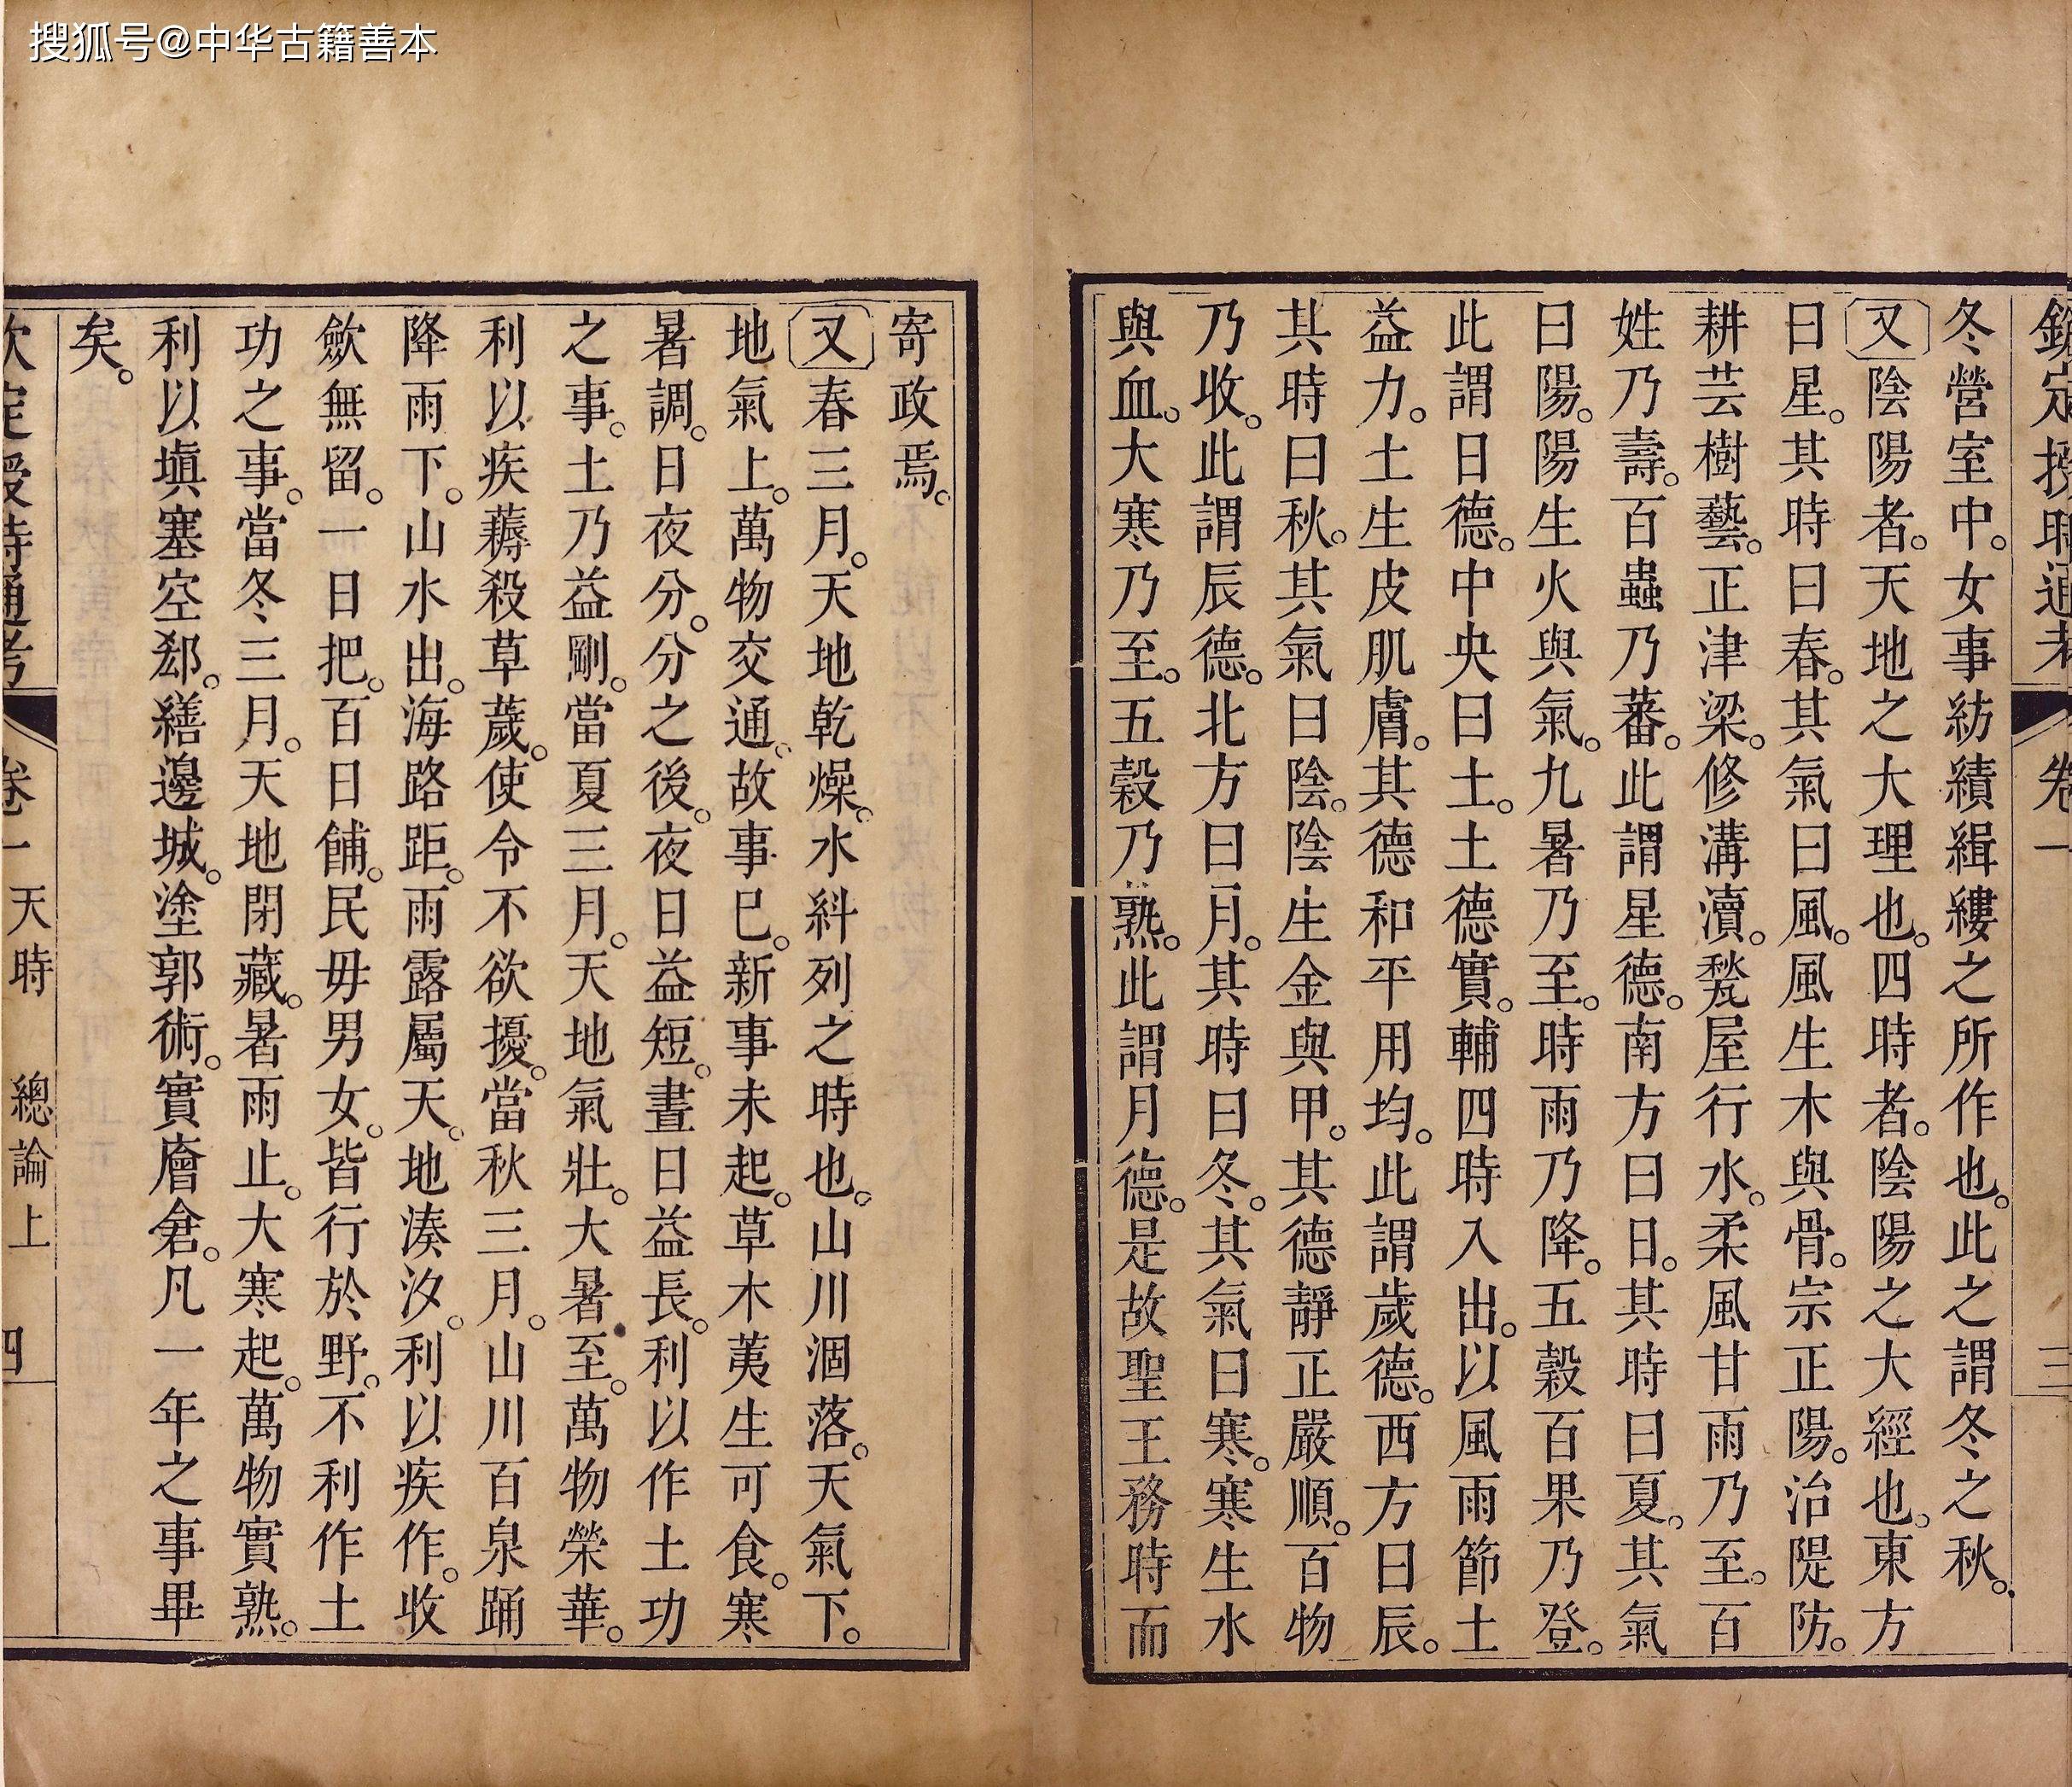 搜狐号@中华古籍善本
欽定授時通考 卷一 三
冬營室中。女事紡績緝縷之所作也。此之謂冬之秋。
又陰陽者。天地之大理也。四時者。陰陽之大經也。東方
曰星。其時曰春。其氣曰風。風生木與骨。宗正陽。治隄防。
耕芸樹藝。正津梁。修溝瀆。甃屋行水。柔風甘雨乃至。百
姓乃壽。百蟲乃蕃。此謂星德。南方曰日。其時曰夏。其氣
曰陽。陽生火與氣。九暑乃至。時雨乃降。五穀百果乃登。
此謂日德。中央曰土。土德實。輔四時入出。以風雨節土
益力。土生皮肌膚。其德和平用均。此謂歲德。西方曰辰。
其時曰秋。其氣曰陰。陰生金與甲。其德靜正嚴順。百物
乃收。此謂辰德。北方曰月。其時曰冬。其氣曰寒。寒生水
與血。大寒乃至。五穀乃熟。此謂月德。是故聖王務時而
寄政焉。
又春三月。天地乾燥。水糾列之時也。山川涸落。天氣下。
地氣上。萬物交通。故事已。新事未起。草木荑生可食。寒
暑調。日夜分。分之後。夜日益短。晝日益長。利以作土功
之事。土乃益剛。當夏三月。天地氣壯。大暑至。萬物榮華。
利以疾薅殺草薉。使令不欲擾。當秋三月。山川百泉踊
降雨下。山水出。海路距。雨露屬天。地湊汐。利以疾作。收
斂無留。一日把。百日餔。民毋男女。皆行於野。不利作土
功之事。當冬三月。天地閉藏。暑雨止。大寒起。萬物實熟。
利以塡塞空郄。繕邊城。塗郭術。實廥倉。凡一年之事畢
矣。
欽定授時通考 卷一 天時 總論上 四